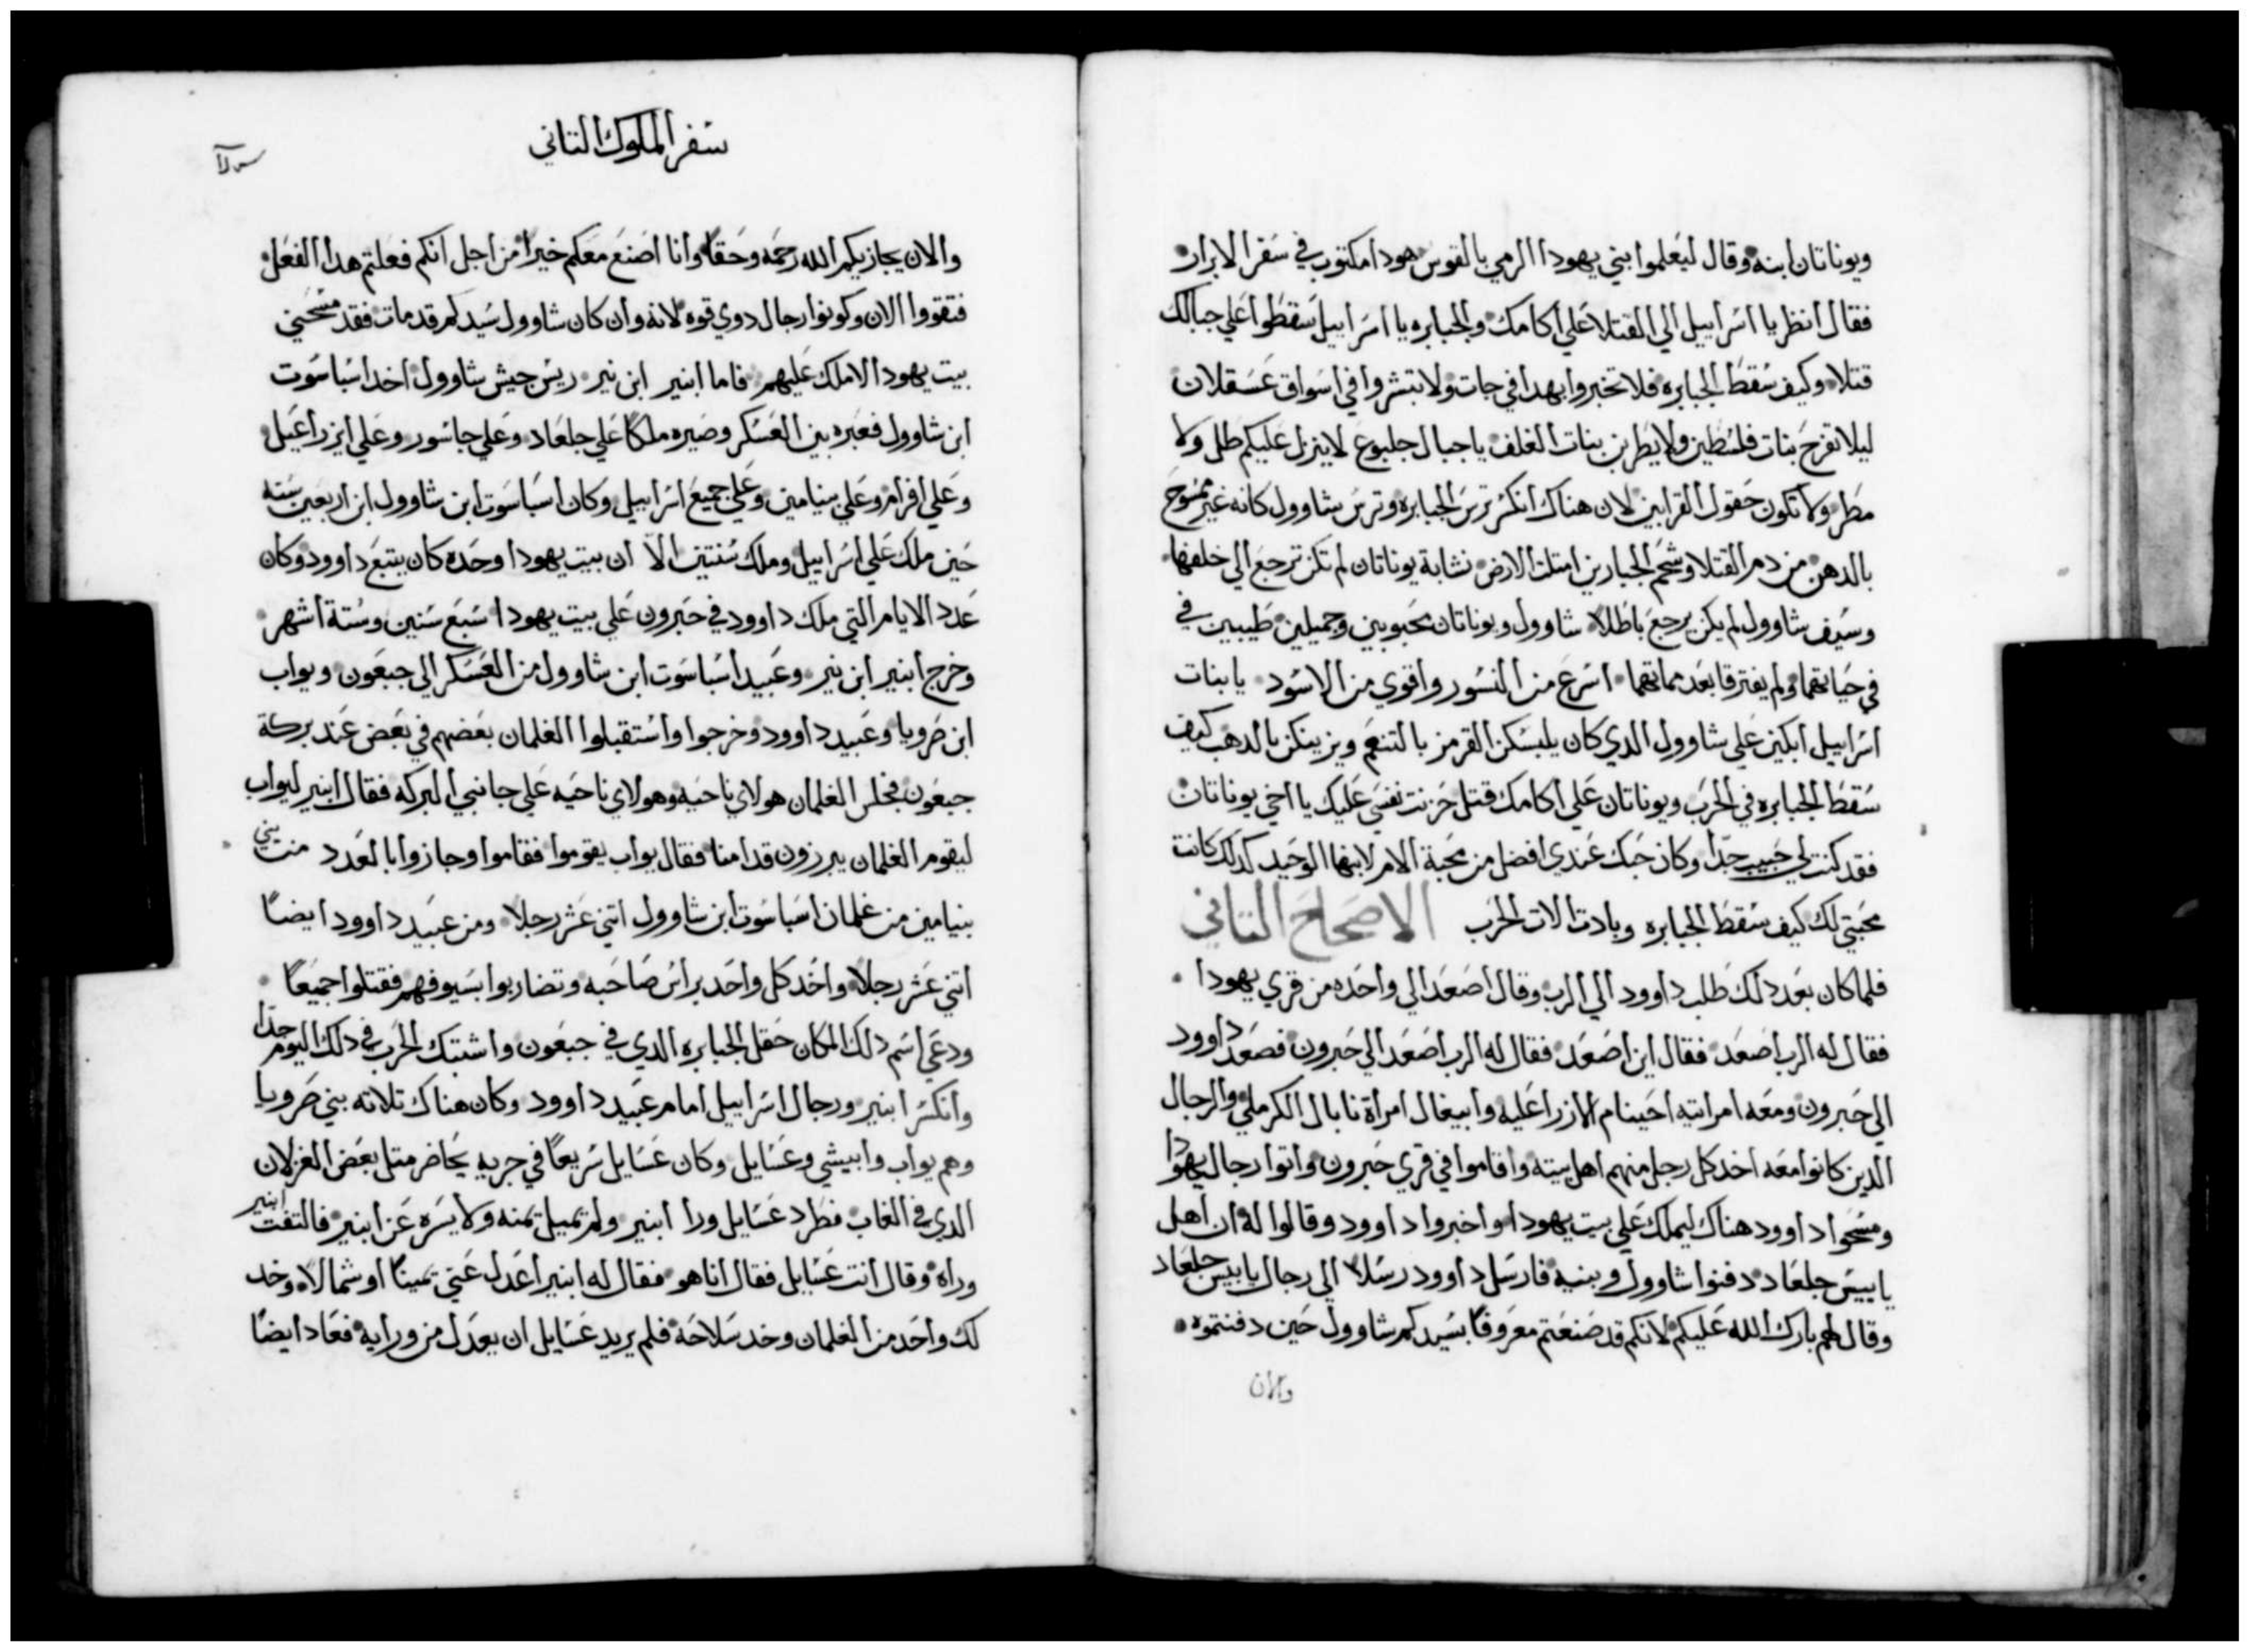 ويوناتان ابنه وقال ليعلموا بني يهودا الرمي بالقوس هودا مكتوب في سفر الابرار
فقال انظر يا اسراييل الي القتلا علي اكامك والجبابره يا اسراييل سقطوا علي جبالك
قتلا وكيف سقط الجبابره فلا تخبروا بهدا في جات ولا تبشروا في اسواق عسقلان
ليلا تفرح بنات فلسطين ولا يطربن بنات الغلف يا جبال جلبوع لا ينزل عليكم طل ولا
مطر ولا تكون حقول القرابين لان هناك انكسر ترس الجبابره وترس شاوول كانه غير ممسوح
بالدهن من دم القتلا وشحم الجبارين امتلت الارض نشابة يوناتان لم تكن ترجع الي خلفها
وسيف شاوول لم يكن يرجع باطلا شاوول ويوناتان محبوبين وجميلين طيبين في
في حياتهما ولم يفترقا بعد مماتهما اسرع من النسور واقوي من الاسود يا بنات
اسراييل ابكين علي شاوول الدي كان يلبسكن القرمز بالتنعم ويزينكن بالدهب كيف
سقط الجبابره في الحرب ويوناتان علي اكامك قتل حزنت نفسي عليك يا اخي يوناتان
فقد كنت لي حبيب جدا وكان حبك عندي افضل من محبة الام لابنها الوحيد كدلك كانت
محبتي لك كيف سقط الجبابره وبادت الات الحرب الاصحاح التاني
فلما كان بعد دلك طلب داوود الي الرب وقال اصعد الي واحده من قري يهودا
فقال له الرب اصعد فقال اين اصعد فقال له الرب اصعد الي حبرون فصعد داوود
الي حبرون ومعه امراتيه احينام الازراعليه وابيغال امراة نابال الكرملي والرجال
الدين كانوا معه اخد كل رجل منهم اهل بيته واقاموا في قري حبرون واتوا رجال يهودا
ومسحوا داوود هناك ليملك علي بيت يهودا واخبروا داوود وقالوا له ان اهل
يابيس جلعاد دفنوا شاوول وبنيه فارسل داوود رسلا الي رجال يابيس جلعاد
وقال لهم بارك الله عليكم لانكم قد صنعتم معروفا بسيدكم شاوول حين دفنتموه
والان
سفر الملوك التاني
والان يجازيكم الله رحمه وحقا وانا اصنع معكم خيرا من اجل انكم فعلتم هدا الفعل
فتقووا الان وكونوا رجال دوي قوه لانه وان كان شاوول سيدكم قد مات فقد مسحني
بيت يهودا لاملك عليهم فاما ابنير ابن نير ريس جيش شاوول اخد اسباسوت
ابن شاوول فعبره بين العسكر وصيره ملكا علي جلعاد وعلي جاسور وعلي ايزراعيل
وعلي افرام وعلي بنيامين وعلي جميع اسراييل وكان اسباسوت ابن شاوول ابن اربعين سنه
حين ملك علي اسراييل وملك سنتين الا ان بيت يهودا وحده كان يتبع داوود وكان
عدد الايام التي ملك داوود في حبرون علي بيت يهودا سبع سنين وستة اشهر
وخرج ابنير ابن نير وعبيد اسباسوت ابن شاوول من العسكر الي جبعون ويواب
ابن ضرويا وعبيد داوود وخرجوا واستقبلوا الغلمان بعضهم في بعض عند بركة
جبعون فجلس الغلمان هولاي ناحيه وهولاي ناحيه علي جانبي البركه فقال ابنير ليواب
ليقوم الغلمان يبرزون قدامنا فقال يواب يقوموا فقاموا وجازوا بالعدد من بني
بنيامين من غلمان اسباسوت ابن شاوول اتني عشر رجلا ومن عبيد داوود ايضا
اتني عشر رجلا واخد كل واحد براس صاحبه وتضاربوا بسيوفهم فقتلوا جميعا
ودعي اسم دلك المكان حقل الجبابره الدي في جبعون واشتبك الحرب في دلك اليوم جدا
وانكسر ابنير ورجال اسراييل امام عبيد داوود وكان هناك تلاته بني ضرويا
وهم يواب وابيشي وعسايل وكان عسايل سريعا في جريه يحاضر متل بعض الغزلان
الدي في الغاب فطرد عسايل ورا ابنير ولم تميل يمنه ولا يسره عن ابنير فالتفت ابنير
وراه وقال انت عسايل فقال انا هو فقال له ابنير اعدل عني يمينا او شمالا وخد
لك واحد من الغلمان وخد سلاحه فلم يريد عسايل ان يعدل من ورايه فعاد ايضا